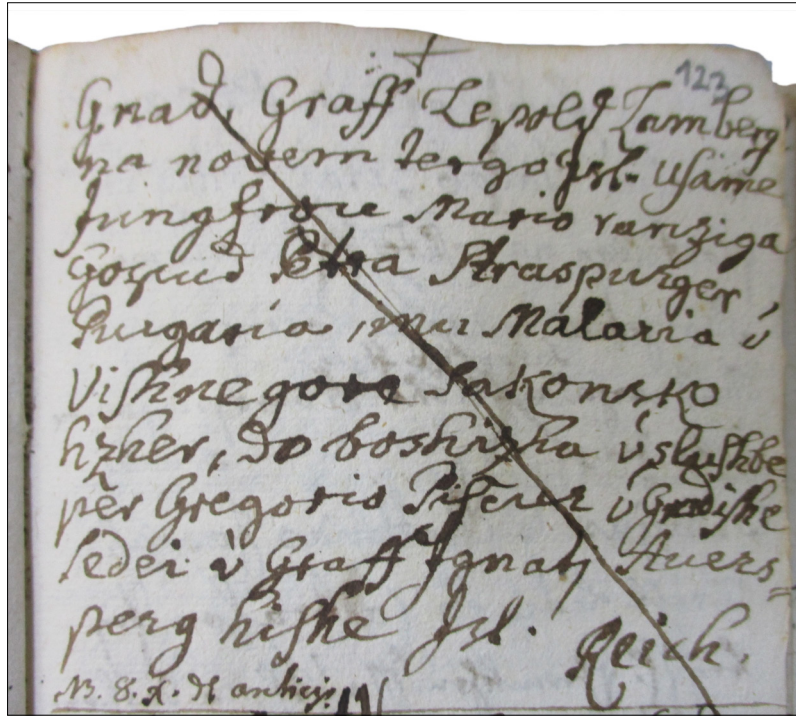 123
Gnad, Graff Lepold Lamberg
na novem tergo Jsl. usame
Jungfrove Mario ranziga
Gospud Petra Straspurger,
Purgaria, inu Malaria v
Vishnegore Sakonsko
hzher, do boshizha v slushbe
per Gregorio v Gradishe
sedei v Graff Ignaz Auers=
perg hishe Jsl. Reich.
NB. 8. X. dt anticip: